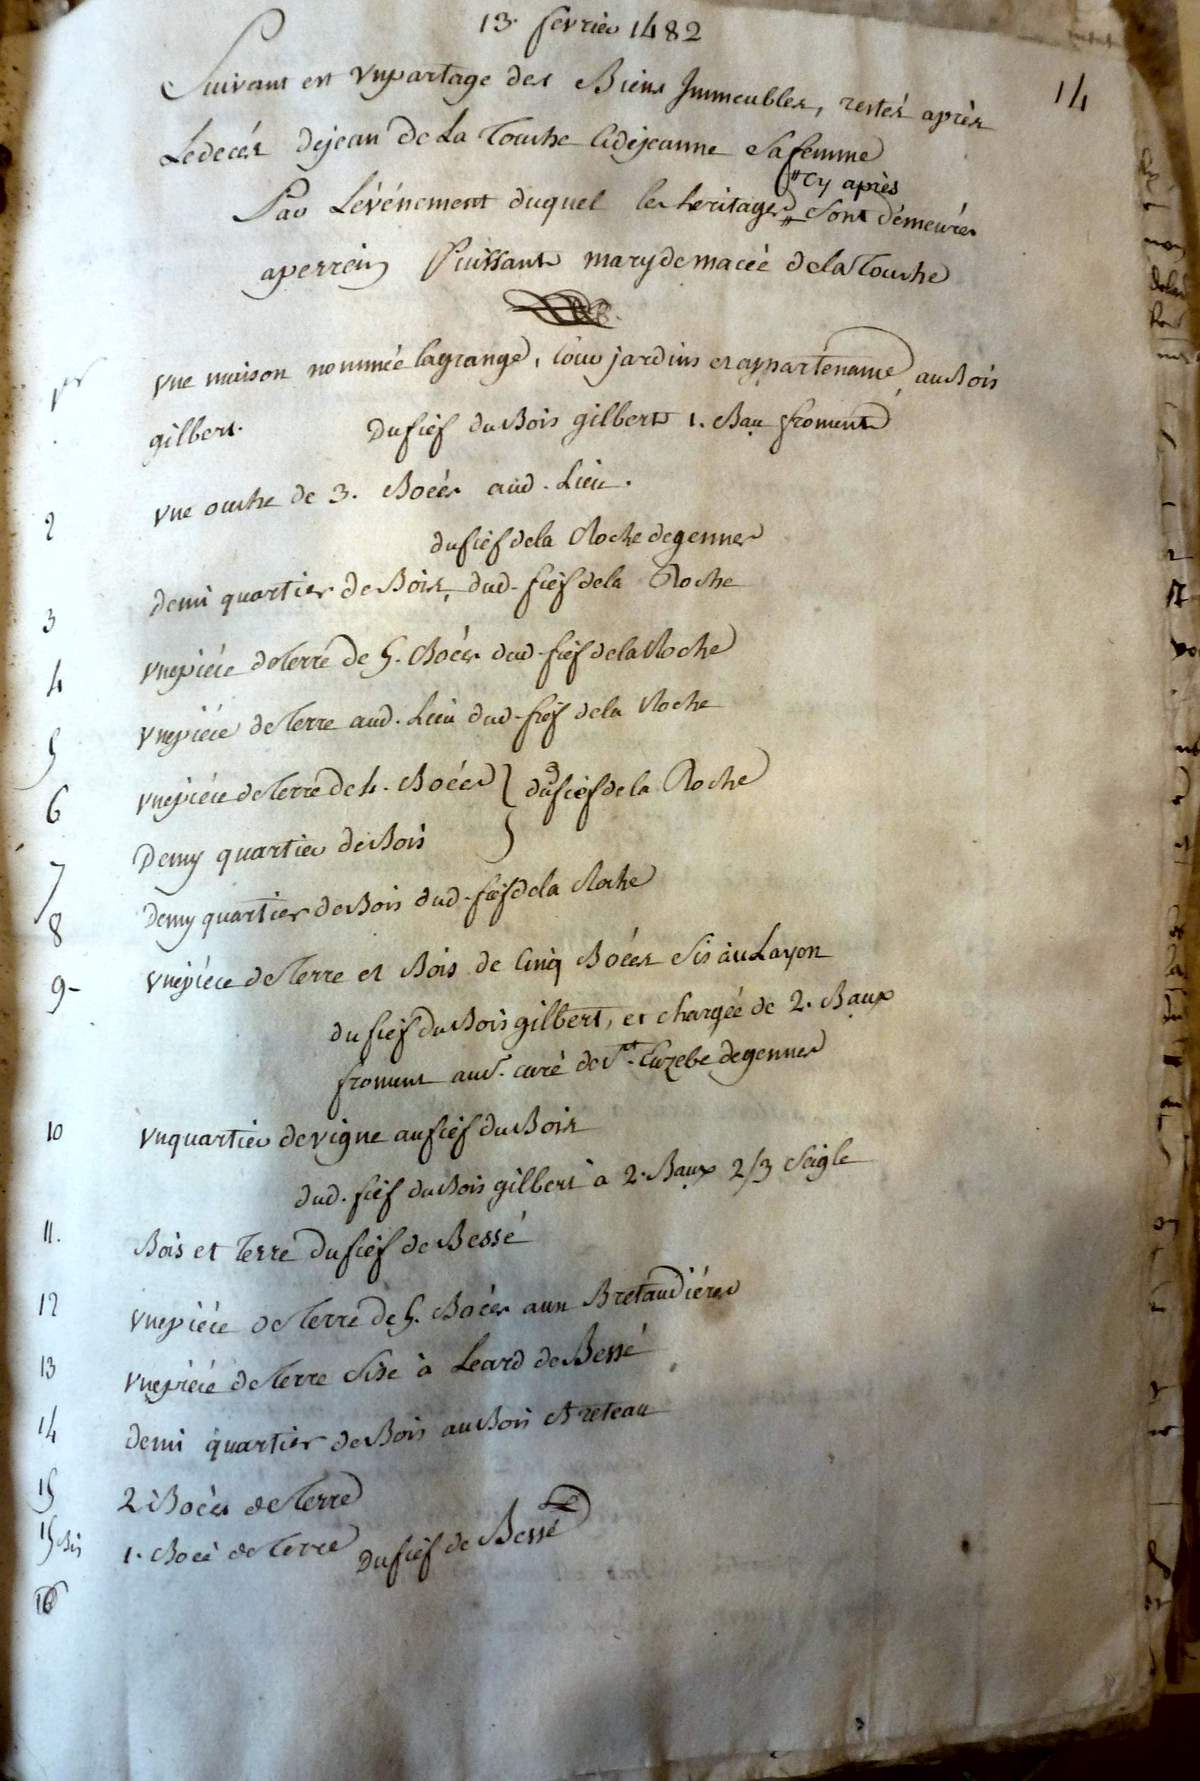 13. fevrier 1482
14
Suivant en un partage des Biens Immeubles, restés après
Le decés de jean de La Touche & de jeanne Sa femme
" cy après
Par L'événement duquel les heritages " Sont démeurés
a perrein Puissant mary de macée de la Touche
1er Une maison nommée la grange, Cour jardins et appartenance au Bois
gilbert. du fief du Bois gilbert 1. Bau froment
2 Une ouche de 3. Boées aud. Lieu.
du fief de la Roche de gennes
3 demi quartier de Bois, dud. fief de la Roche
4 Une piéce de Terre de 5. Boées dud. fief de la Roche
5 Une piéce de Terre aud. Lieu dud. fief de la Roche
6 Une piéce de Terre de 4. Boées } du fief de la Roche
7 Demy quartier de Bois }
8 Demy quartier de Bois dud. fief de la Roche
9- Une piéce de Terre et Bois de Cinq Boées Sis au Layon
du fief du Bois gilbert, et chargée de 2. Baux
froment au S. curé de St. Euzebe de gennes
10 Un quartier de vigne au fief du Bois
dud. fief du Bois gilbert à 2. Baux 2/3 Seigle
11. Bois et Terre du fief de Bessé
12 Une piéce de Terre de 5. Boées aux Bretaudiéres
13 Une piéce de Terre Sise à Leard de Bessé
14 demi quartier de Bois au Bois
15 2 Boées de Terre
15 Bis 1. Boée de Terre du fief de Bessé
16